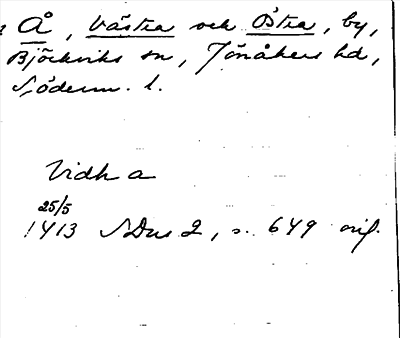 Å, Västra och Östra, by,
Björkviks sn, Jönåkers hd,
Söderm. l.
Vidh a
25/5
1413 SDns 2, s. 649 orig.